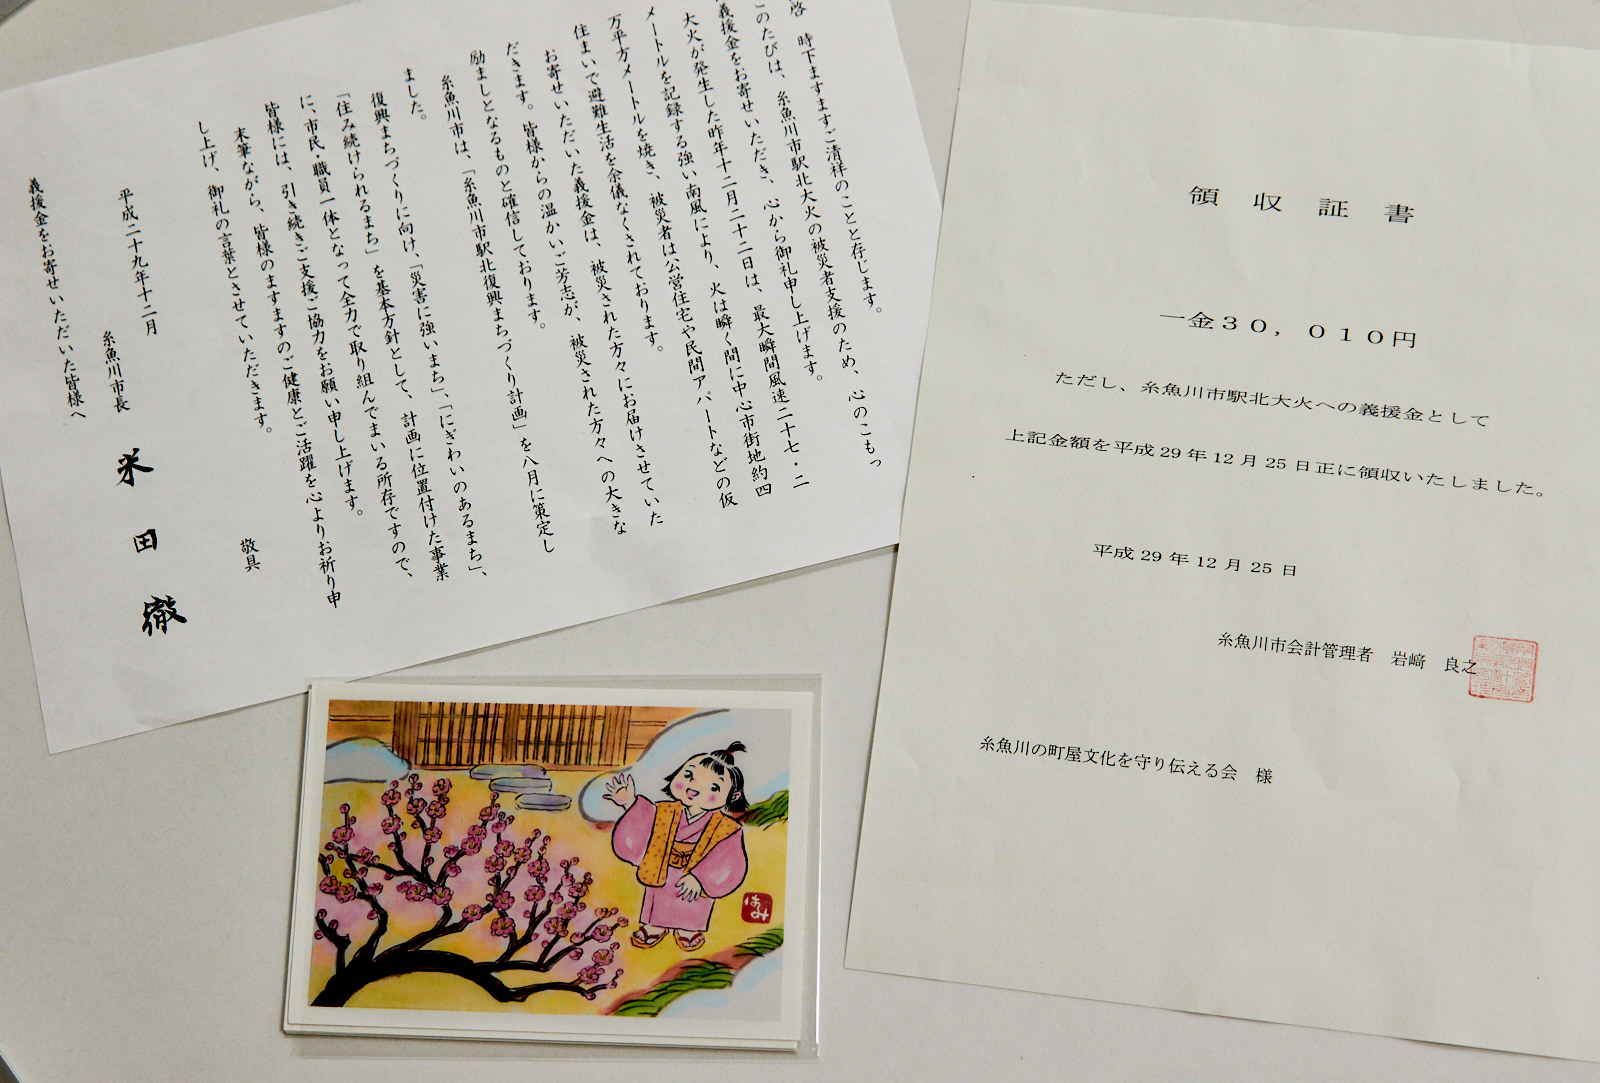 啓　時下ますますご清祥のことと存じます。
このたびは、糸魚川市駅北大火の被災者支援のため、心のこもっ
義援金をお寄せいただき、心から御礼申し上げます。
大火が発生した昨年十二月二十二日は、最大瞬間風速二十七・二
メートルを記録する強い南風により、火は瞬く間に中心市街地約四
万平方メートルを焼き、被災者は公営住宅や民間アパートなどの仮
住まいで避難生活を余儀なくされております。
お寄せいただいた義援金は、被災された方々にお届けさせていた
だきます。皆様からの温かいご芳志が、被災された方々への大きな
励ましとなるものと確信しております。
糸魚川市は、「糸魚川市駅北復興まちづくり計画」を八月に策定し
ました。
復興まちづくりに向け、「災害に強いまち」、「にぎわいのあるまち」、
「住み続けられるまち」を基本方針として、計画に位置付けた事業
に、市民・職員一体となって全力で取り組んでまいる所存ですので、
皆様には、引き続きご支援ご協力をお願い申し上げます。
末筆ながら、皆様のますますのご健康とご活躍を心よりお祈り申
し上げ、御礼の言葉とさせていただきます。
敬具
平成二十九年十二月
糸魚川市長　米田徹
義援金をお寄せいただいた皆様へ
領収証書
一金３０，０１０円
ただし、糸魚川市駅北大火への義援金として
上記金額を平成29年12月25日正に領収いたしました。
平成29年12月25日
糸魚川市会計管理者　岩﨑　良之
糸魚川の町屋文化を守り伝える会　様
はみ